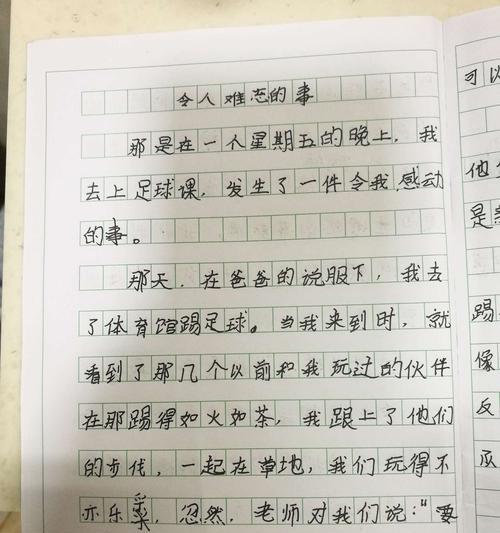 令人难忘的事
那是在一个星期五的晚上，我
去上足球课，发生了一件令我感动
的事。
那天，在爸爸的说服下，我去
了体育馆踢足球。当我来到时，就
看到了那几个以前和我玩过的伙伴
在那踢得如火如茶，我跟上了他们
的步伐，一起在草地，我们玩得不
亦乐乎，忽然，老师对我们说："要
可以
他
是
踢
像
反